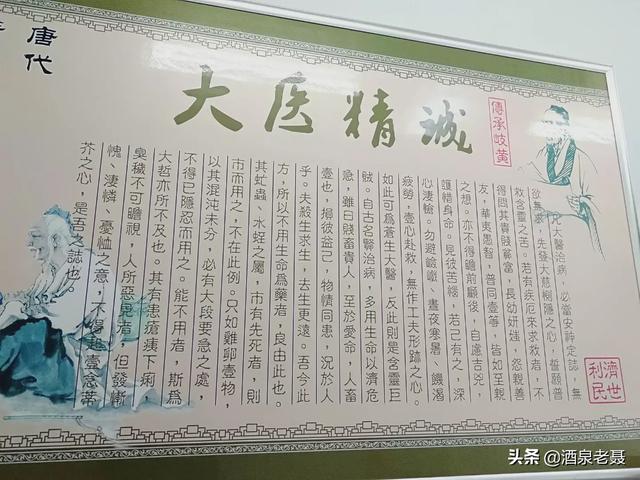 大医精诚
傳承岐黃
凡大醫治病，必當安神定誌，無
欲無求，先發大慈惻隱之心，誓願普
救含靈之苦。若有疾厄來求救者，不
得問其貴賤貧富，長幼妍媸，怨親善
友，華夷愚智，普同壹等，皆如至親
之想。亦不得瞻前顧後，自慮吉凶，
護惜身命。見彼苦惱，若己有之，深
心淒愴。勿避嶮巇、晝夜寒暑、饑渴
疲勞，壹心赴救，無作工夫形跡之心。
如此可爲蒼生大醫，反此則是含靈巨
賊。自古名賢治病，多用生命以濟危
急，雖曰賤畜貴人，至於愛命，人畜
壹也，損彼益己，物情同患，況於人
乎。夫殺生求生，去生更遠。吾今此
方，所以不用生命爲藥者，良由此也。
其虻蟲、水蛭之屬，市有先死者，則
市而用之，不在此例。只如雞卵壹物，
以其混沌未分，必有大段要急之處，
不得已隱忍而用之。能不用者，斯爲
大哲亦所不及也。其有患瘡痍下痢，
臭穢不可瞻視，人所惡見者，但發慚
愧、淒憐、憂恤之意，不得起壹念蒂
芥之心，是吾之誌也。
濟世利民
唐代
头条 @酒泉老聂